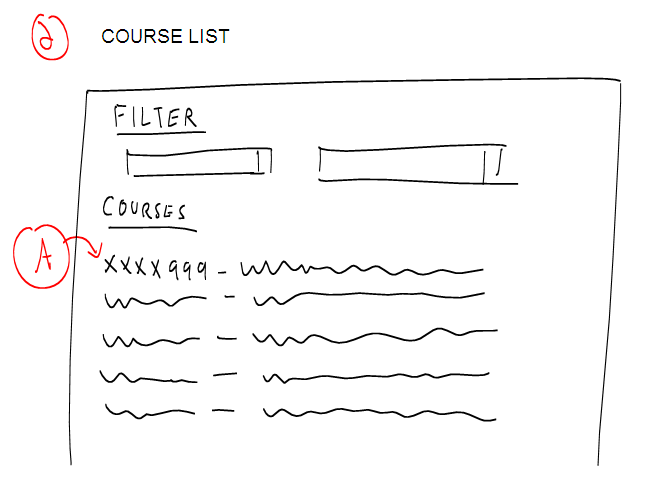 2 COURSE LIST
FILTER
COURSES
A
XXXX999 -